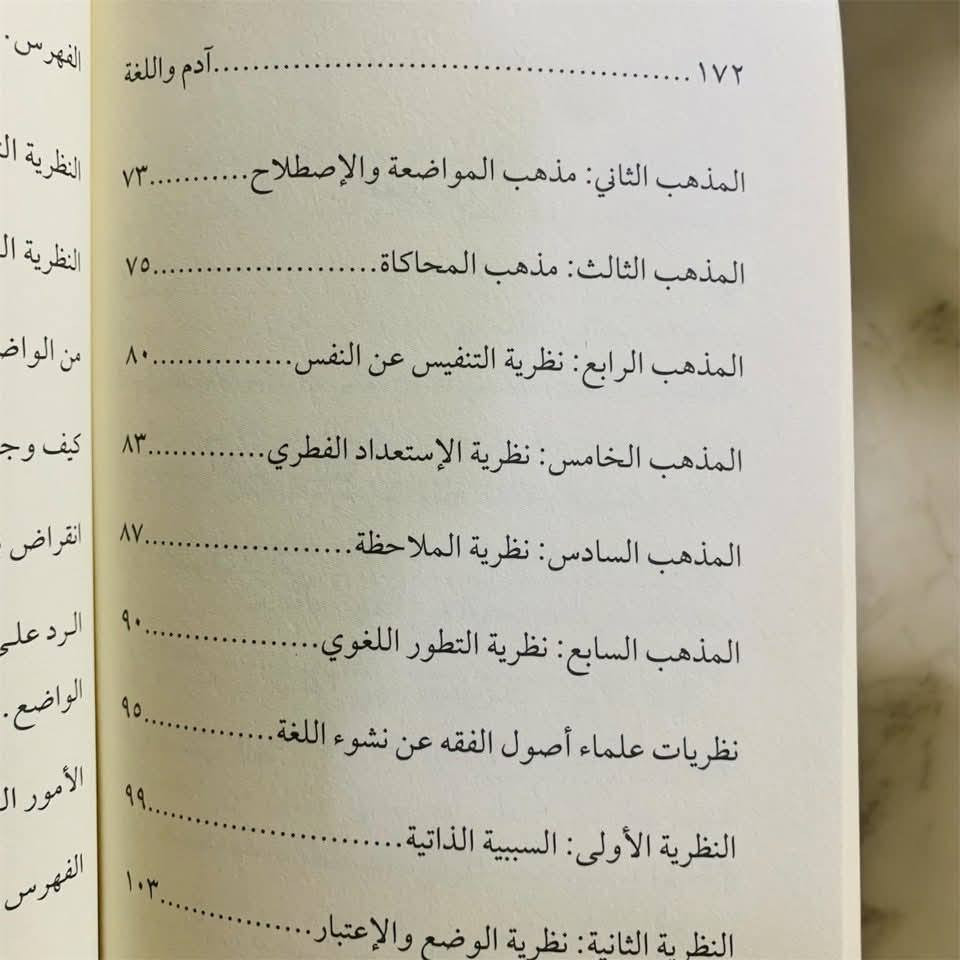 ١٧٢ ................................................ آدم واللغة
المذهب الثاني: مذهب المواضعة والإصطلاح...........٧٣
المذهب الثالث: مذهب المحاكاة.......................٧٥
المذهب الرابع: نظرية التنفيس عن النفس...............٨٠
المذهب الخامس: نظرية الإستعداد الفطري.............٨٣
المذهب السادس: نظرية الملاحظة......................٨٧
المذهب السابع: نظرية التطور اللغوي...................٩٠
نظريات علماء أصول الفقه عن نشوء اللغة...............٩٥
النظرية الأولى: السببية الذاتية..........................٩٩
النظرية الثانية: نظرية الوضع والإعتبار................١٠٣
الفهرس.
النظرية
النظرية
من
كيف
انقراض
الرد على
الواضع.
الأمور
الفهرس